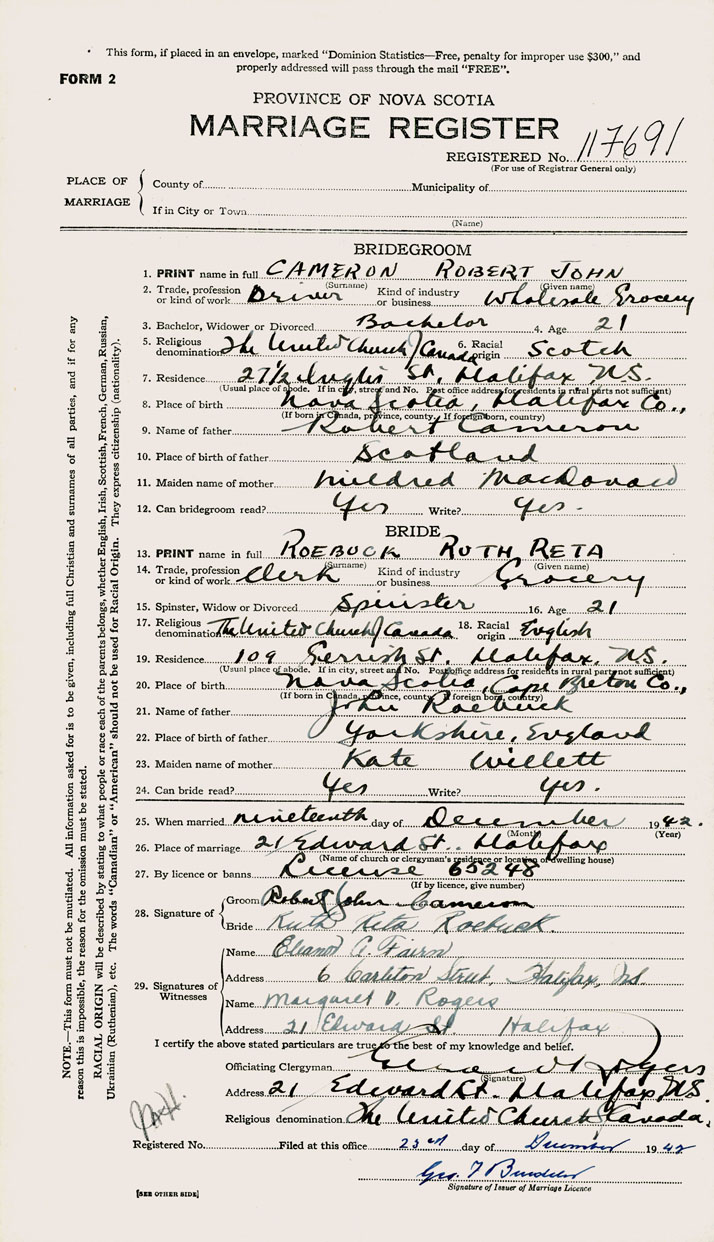 This form, if placed in an envelope, marked “Dominion Statistics—Free, penalty for improper use $300,” and
properly addressed will pass through the mail “FREE”.
FORM 2
PROVINCE OF NOVA SCOTIA
MARRIAGE REGISTER
REGISTERED No. 117691
(For use of Registrar General only)
PLACE OF MARRIAGE
County of Municipality of
If in City or Town
(Name)
BRIDEGROOM
1. PRINT name in full CAMERON ROBERT JOHN
(Surname) (Given name)
2. Trade, profession or kind of work Driver Kind of industry or business Wholesale Grocery
3. Bachelor, Widower or Divorced Bachelor 4. Age 21
5. Religious denomination The United Church of Canada 6. Racial origin Scotch
7. Residence 27½ Inglis St. Halifax N.S.
(Usual place of abode. If in city, street and No. Post office address for residents in rural parts not sufficient)
8. Place of birth Nova Scotia, Halifax Co.,
(If born in Canada, province, county. If foreign born, country)
9. Name of father Robert Cameron
10. Place of birth of father Scotland
11. Maiden name of mother Mildred MacDonald
12. Can bridegroom read? Yes Write? Yes.
BRIDE
13. PRINT name in full ROEBUCK RUTH RETA
(Surname) (Given name)
14. Trade, profession or kind of work Clerk Kind of industry or business Grocery
15. Spinster, Widow or Divorced Spinster 16. Age 21
17. Religious denomination The United Church of Canada 18. Racial origin English
19. Residence 109 Gerrish St. Halifax. N.S.
(Usual place of abode. If in city, street and No. Post office address for residents in rural part not sufficient)
20. Place of birth Nova Scotia, Cape Breton Co.,
(If born in Canada, province, county. If foreign born, country)
21. Name of father John Roebuck
22. Place of birth of father Yorkshire, England
23. Maiden name of mother Kate Willett
24. Can bride read? Yes Write? Yes.
25. When married nineteenth day of December 1942.
(Month) (Year)
26. Place of marriage 21 Edward St. Halifax
(Name of church or clergyman's residence or location of dwelling house)
27. By licence or banns License 65248
(If by licence, give number)
28. Signature of
Groom Robert John Cameron
Bride Ruth Reta Roebuck.
29. Signatures of Witnesses
Name Eleanor A. Fairn
Address 6 Carleton Street, Halifax, N.S.
Name Margaret D. Rogers
Address 21 Edward St Halifax
I certify the above stated particulars are true to the best of my knowledge and belief.
Officiating Clergyman Rogers
(Signature)
Address 21 Edward St. Halifax N.S.
Religious denomination The United Church of Canada.
Registered No. Filed at this office 23rd day of December 1942
Geo. T
Signature of Issuer of Marriage Licence
[SEE OTHER SIDE]
NOTE.—This form must not be mutilated. All information asked for is to be given, including full Christian and surnames of all parties, and if for any
reason this is impossible, the reason for the omission must be stated.
RACIAL ORIGIN will be described by stating to what people or race each of the parents belongs, whether English, Irish, Scottish, French, German, Russian,
Ukrainian (Ruthenian), etc. The words “Canadian” or “American” should not be used for Racial Origin. They express citizenship (nationality).